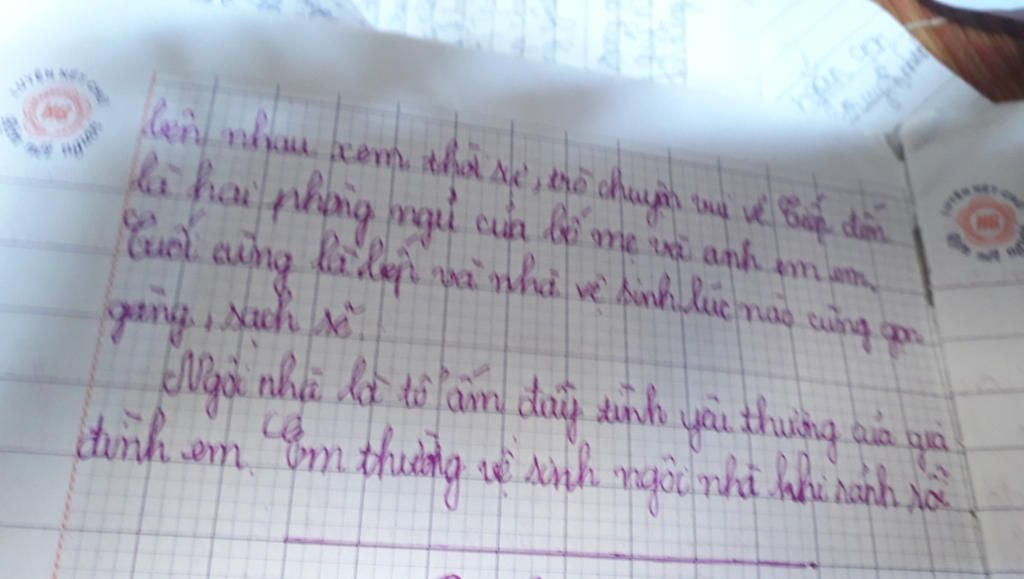 LUYỆN NÉT CHỮ
RÈN NẾT NGƯỜI
LUYỆN NÉT CHỮ
RÈN NẾT NGƯỜI
bên nhau xem thời sự, trò chuyện vui vẻ. Tiếp đến
là hai phòng ngủ của bố mẹ và anh em em.
Cuối cùng là bếp và nhà vệ sinh lúc nào cũng gọn
gàng, sạch sẽ.
Ngôi nhà là tổ ấm đầy tình yêu thương của gia
đình em. Em thường vệ sinh ngôi nhà khi rảnh rỗi